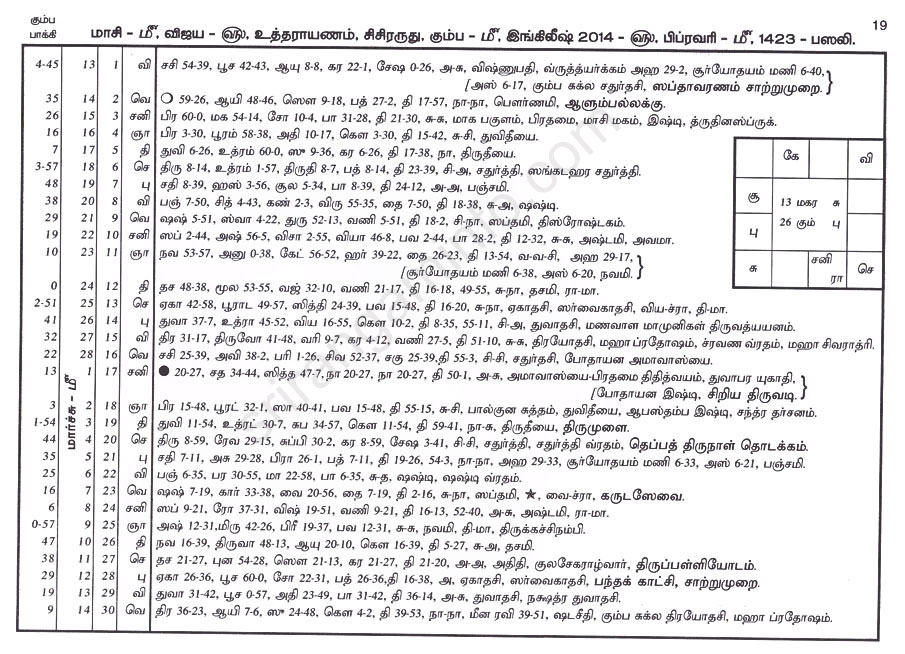 கும்ப
பாக்கி
மாசி - மீ, விஜய - ௵, உத்தராயணம், சிசிரருது, கும்ப - மீ, இங்கிலீஷ் 2014 - ௵, பிப்ரவரி - மீ, 1423 - பஸலி.
19
4-45 13 1 வி சசி 54-39, பூச 42-43, ஆயு 8-8, கர 22-1, சேஷ 0-26, அ-சு, விஷ்ணுபதி, வ்ருத்த்யர்க்கம் அஹ 29-2, சூர்யோதயம் மணி 6-40,
[அஸ் 6-17, கும்ப சுக்ல சதுர்தசி, ஸப்தாவரணம் சாற்றுமுறை.
35 14 2 வெ ❍ 59-26, ஆயி 48-46, ஸௌ 9-18, பத் 27-2, தி 17-57, நா-நா, பௌர்ணமி, ஆளும்பல்லக்கு.
26 15 3 சனி பிர 60-0, மக 54-14, சோ 10-4, பா 31-28, தி 21-30, சு-சு, மாக பகுளம், பிரதமை, மாசி மகம், இஷ்டி, த்ருதினஸ்ப்ருக்.
16 16 4 ஞா பிர 3-30, பூரம் 58-38, அதி 10-17, கௌ 3-30, தி 15-42, சு-சி, துவிதீயை.
7 17 5 தி துவி 6-26, உத்ரம் 60-0, ஸு 9-36, கர 6-26, தி 17-38, நா, திருதீயை.
3-57 18 6 செ திரு 8-14, உத்ரம் 1-57, திருதி 8-7, பத் 8-14, தி 23-39, சி-அ, சதுர்த்தி, ஸங்கடஹர சதுர்த்தி.
48 19 7 பு சதி 8-39, ஹஸ் 3-56, சூல 5-34, பா 8-39, தி 24-12, அ-அ, பஞ்சமி.
38 20 8 வி பஞ் 7-50, சித் 4-43, கண் 2-3, விரு 55-35, தை 7-50, தி 18-38, சு-அ, ஷஷ்டி.
29 21 9 வெ ஷஷ் 5-51, ஸ்வா 4-22, துரு 52-13, வணி 5-51, தி 18-2, சி-நா, ஸப்தமி, திஸ்ரோஷ்டகம்.
19 22 10 சனி ஸப் 2-44, அஷ் 56-5, விசா 2-55, வியா 46-8, பவ 2-44, பா 28-2, தி 12-32, சு-சு, அஷ்டமி, அவமா.
10 23 11 ஞா நவ 53-57, அனு 0-38, கேட் 56-52, ஹர் 39-22, தை 26-23, தி 13-54, வ-வ-சி, அஹ 29-17,
[சூர்யோதயம் மணி 6-38, அஸ் 6-20, நவமி.
0 24 12 தி தச 48-38, மூல 53-55, வஜ் 32-10, வணி 21-17, தி 16-18, 49-55, சு-நா, தசமி, ரா-மா.
2-51 25 13 செ ஏகா 42-58, பூராட 49-57, ஸித்தி 24-39, பவ 15-48, தி 16-20, சு-நா, ஏகாதசி, ஸர்வைகாதசி, விய-ச்ரா, தி-மா.
41 26 14 பு துவா 37-7, உத்ரா 45-52, விய 16-55, கௌ 10-2, தி 8-35, 55-11, சி-அ, துவாதசி, மணவாள மாமுனிகள் திருவத்யயனம்.
32 27 15 வி திர 31-17, திருவோ 41-48, வரி 9-7, கர 4-12, வணி 27-5, தி 51-10, சு-சு, திரயோதசி, மஹா ப்ரதோஷம், ச்ரவண வ்ரதம், மஹா சிவராத்ரி.
22 28 16 வெ சசி 25-39, அவி 38-2, பரி 1-26, சிவ 52-37, சகு 25-39,தி 55-3, சி-சி, சதுர்தசி, போதாயன அமாவாஸ்யை.
13 1 17 சனி ● 20-27, சத 34-44, ஸித்த 47-7,நா 20-27, நா 20-27, தி 50-1, அ-சு, அமாவாஸ்யை-பிரதமை திதித்வயம், துவாபர யுகாதி,
[போதாயன இஷ்டி, சிறிய திருவடி.
மார்ச்சு - மீ
3 2 18 ஞா பிர 15-48, பூரட் 32-1, ஸா 40-41, பவ 15-48, தி 55-15, சு-சி, பால்குன சுத்தம், துவிதீயை, ஆபஸ்தம்ப இஷ்டி, சந்த்ர தர்சனம்.
1-54 3 19 தி துவி 11-54, உத்ரட் 30-7, சுப 34-57, கௌ 11-54, தி 59-41, நா-சு, திருதீயை, திருமுளை.
44 4 20 செ திரு 8-59, ரேவ 29-15, சுப்பி 30-2, கர 8-59, சேஷ 3-41, சி-சி, சதுர்த்தி, சதுர்த்தி வ்ரதம், தெப்பத் திருநாள் தொடக்கம்.
35 5 21 பு சதி 7-11, அசு 29-28, பிரா 26-1, பத் 7-11, தி 19-26, 54-3, நா-நா, அஹ 29-33, சூர்யோதயம் மணி 6-33, அஸ் 6-21, பஞ்சமி.
25 6 22 வி பஞ் 6-35, பர 30-55, மா 22-58, பா 6-35, சு-த, ஷஷ்டி, ஷஷ்டி வ்ரதம்.
16 7 23 வெ ஷஷ் 7-19, கார் 33-38, வை 20-56, தை 7-19, தி 2-16, சு-நா, ஸப்தமி, ★, வை-ச்ரா, கருடஸேவை.
6 8 24 சனி ஸப் 9-21, ரோ 37-31, விஷ் 19-51, வணி 9-21, தி 16-13, 52-40, சு-அ, அஷ்டமி, ரா-மா.
0-57 9 25 ஞா அஷ் 12-31,மிரு 42-26, பிரீ 19-37, பவ 12-31, சு-சு, நவமி, தி-மா, திருக்கச்சிநம்பி.
47 10 26 தி நவ 16-39, திருவா 48-13, ஆயு 20-10, கௌ 16-39, தி 5-27, சு-அ, தசமி.
38 11 27 செ தச 21-27, புன 54-28, ஸௌ 21-13, கர 21-27, தி 21-20, அ-அ, அதிதி, குலசேகராழ்வார், திருப்பள்ளியோடம்.
29 12 28 பு ஏகா 26-36, பூச 60-0, சோ 22-31, பத் 26-36,தி 16-38, அ, ஏகாதசி, ஸர்வைகாதசி, பந்தக் காட்சி, சாற்றுமுறை.
19 13 29 வி துவா 31-42, பூச 0-57, அதி 23-49, பா 31-42, தி 36-14, அ-சு, துவாதசி, நக்ஷத்ர துவாதசி.
9 14 30 வெ திர 36-23, ஆயி 7-6, ஸு 24-48, கௌ 4-2, தி 39-53, நா-நா, மீன ரவி 39-51, ஷடசீதி, கும்ப சுக்ல திரயோதசி, மஹா ப்ரதோஷம்.
கே வி
சூ 13 மகர சு
பு 26 கும் பு
சு சனி ரா செ